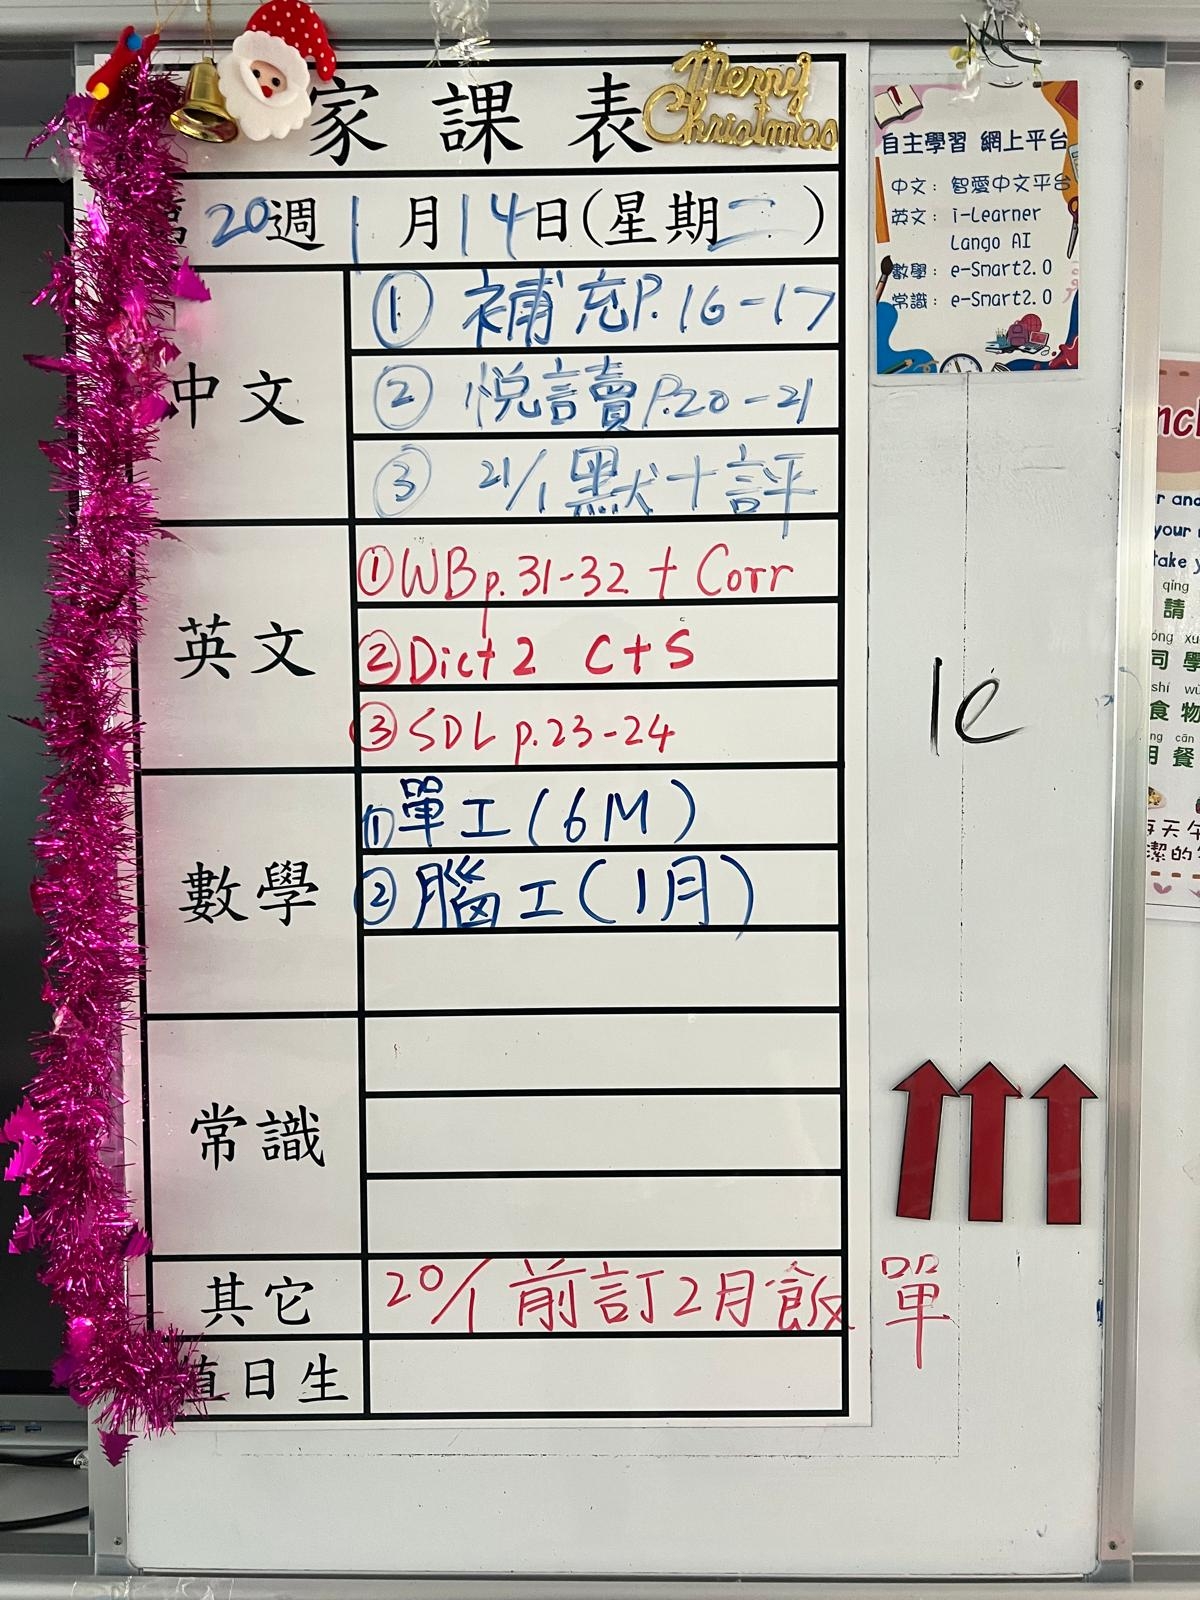 家課表
Merry Christmas
第20週1月14日(星期二)
中文
① 補充P.16-17
② 悅讀P.20-21
③ 21/1默+評
英文
①WB p.31-32 + Corr
②Dict 2 C+S
③SDL p.23-24
數學
①單工(6M)
②腦工(1月)
常識
其它
20/1前訂2月飯單
值日生
自主學習 網上平台
中文: 智愛中文平台
英文: i-Learner
Lango AI
數學: e-Smart2.0
常識: e-Smart2.0
1e
your
take
qǐng
請
學
shí
食物
cān
用餐